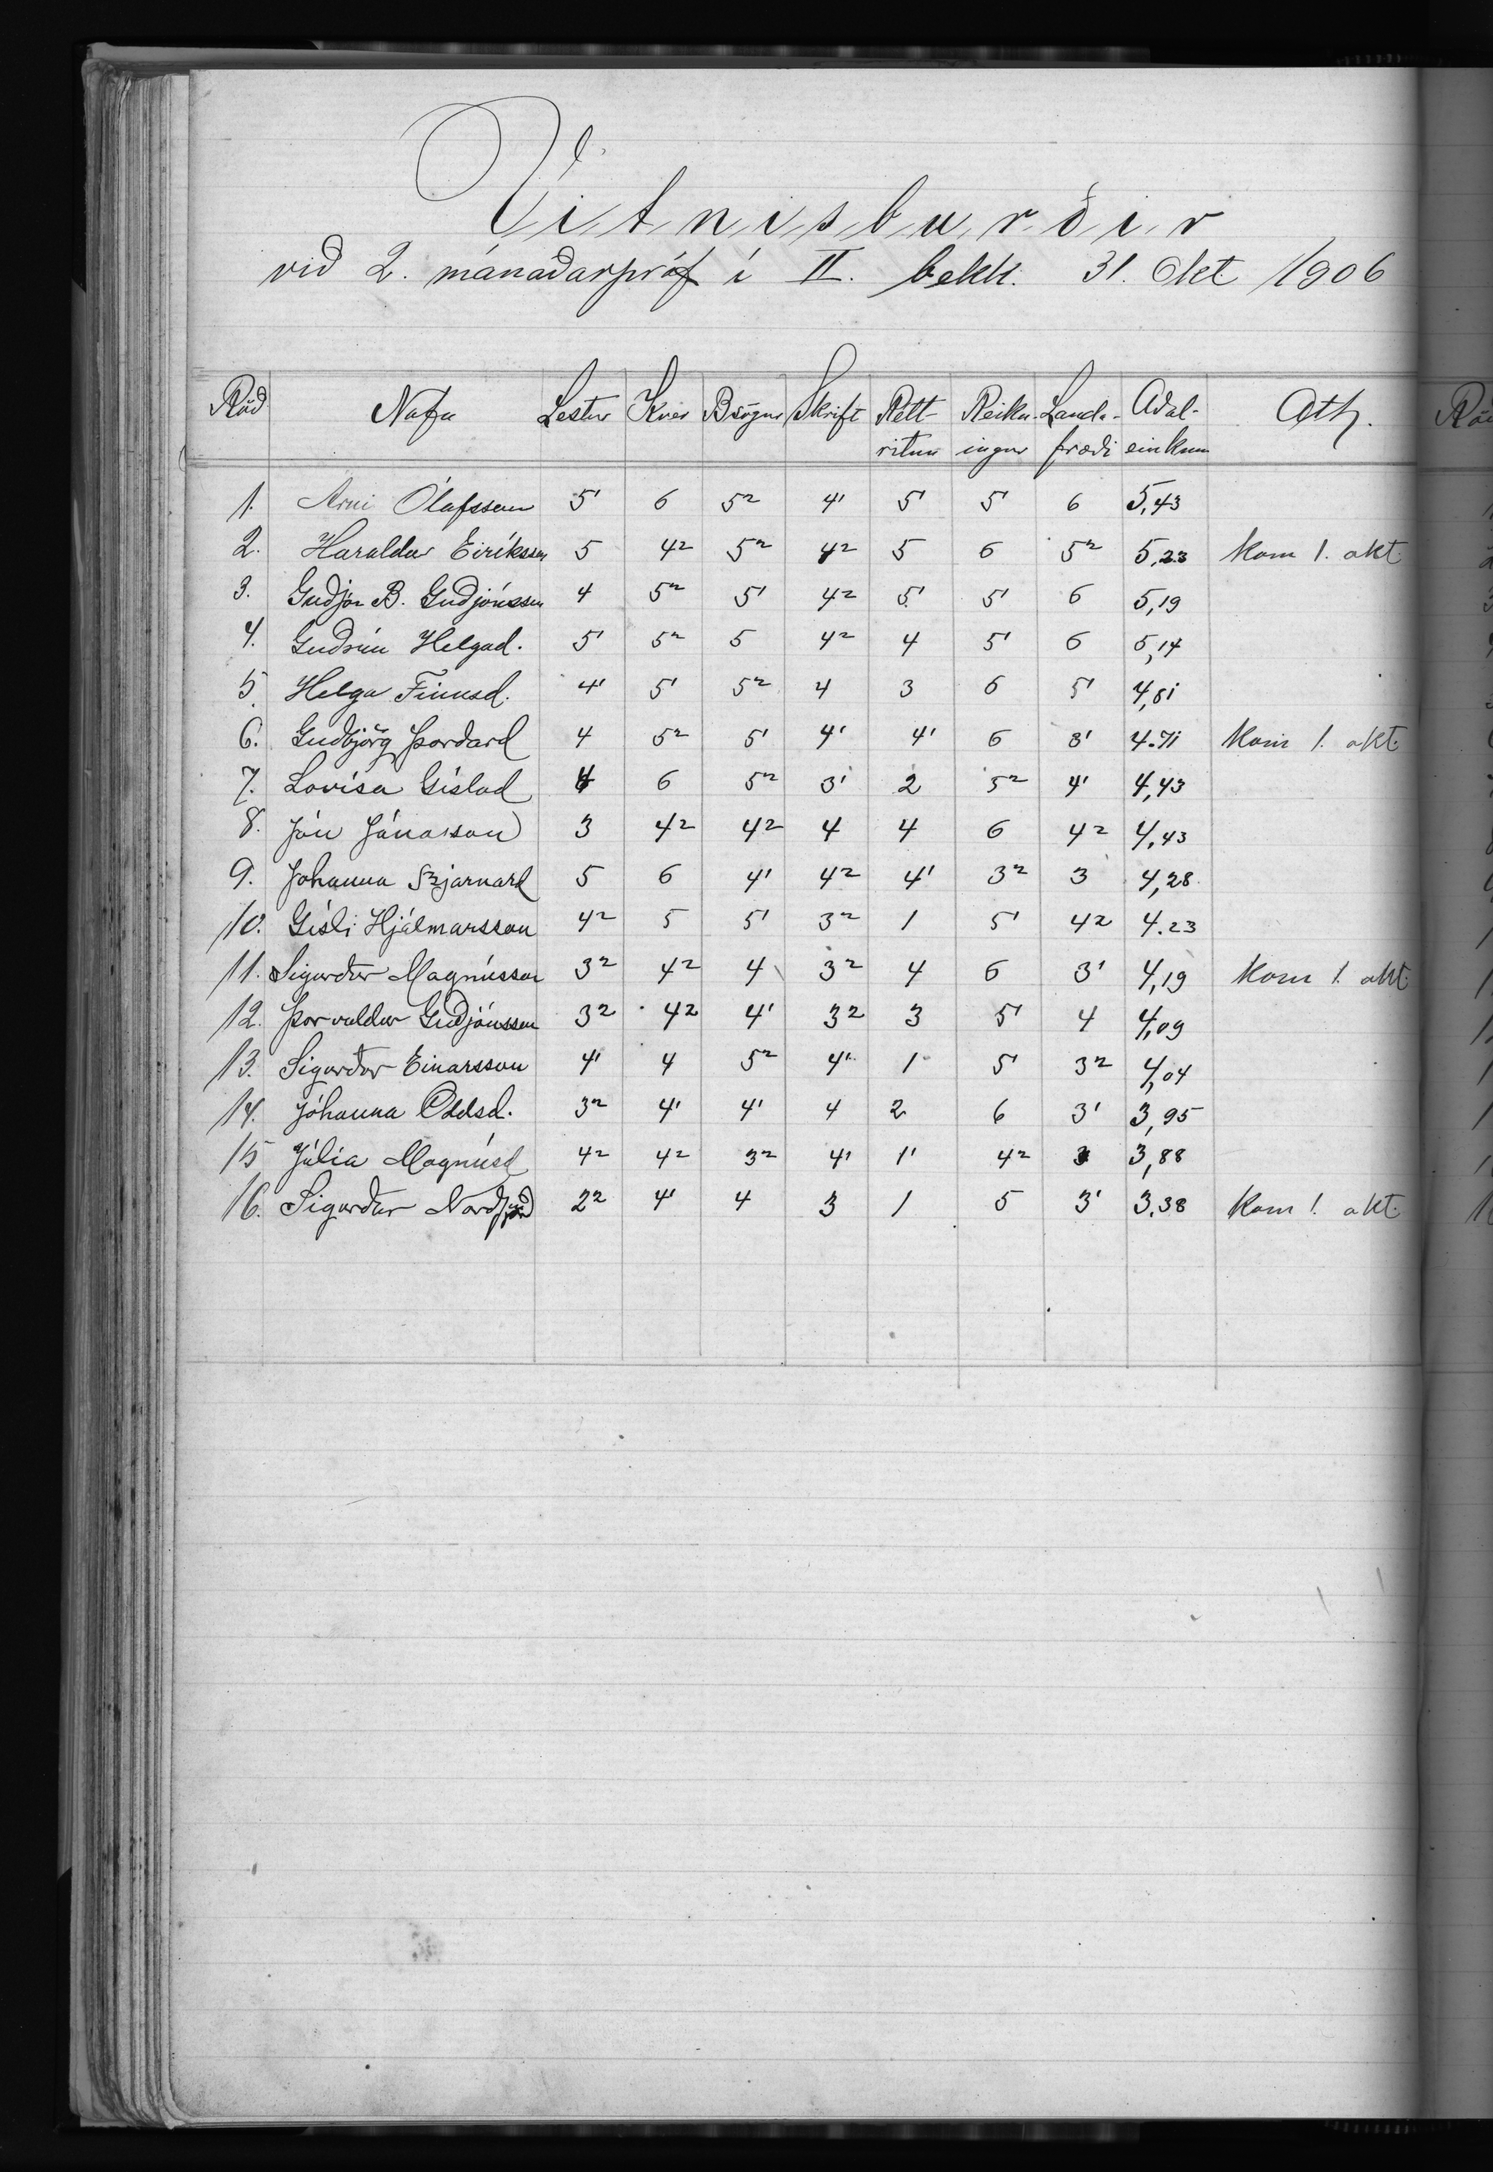 Vitnisburðir
við 2. mánaðarpróf í II. bekk. 31. Okt 1906
Röð Nafn Lestur Kver Bsögur Skrift Rétt-ritun Reikn-ingur Landa-fræði Aðal-einkunn Ath.
1. Árni Ólafsson 5¹ 6 5² 4¹ 5¹ 5¹ 6 5,43
2. Haraldur Eiríksson 5 4² 5² 4² 5 6 5² 5,23 kom 1. okt.
3. Guðjón B. Guðjónsson 4 5² 5¹ 4² 5¹ 5¹ 6 5,19
4. Guðrún Helgad. 5¹ 5² 5 4² 4 5¹ 6 5,14
5. Helga Finnsd. 4¹ 5¹ 5² 4 3 6 5¹ 4,81
6. Guðbjörg Þorðard 4 5² 5¹ 4¹ 4¹ 6 3¹ 4.71 kom 1. okt.
7. Lovísa Gíslad 4 6 5² 3¹ 2 5² 4¹ 4,43
8. Jón Jónasson 3 4² 4² 4 4 6 4² 4,43
9. Jóhanna Bjarnard 5 6 4¹ 4² 4¹ 3² 3 4,28
10. Gísli Hjálmarsson 4² 5 5¹ 3² 1 5¹ 4² 4.23
11. Sigurður Magnússon 3² 4² 4 3² 4 6 3¹ 4,19 kom 1. okt.
12. Þorvaldur Guðjónsson 3² 4² 4¹ 3² 3 5¹ 4 4,09
13. Sigurður Einarsson 4¹ 4 5² 4¹ 1 5¹ 3² 4,04
14. Jóhanna Oddsd. 3² 4¹ 4¹ 4 2 6 3¹ 3,95
15 Júlía Magnúsd 4² 4² 3² 4¹ 1¹ 4² 3 3,88
16. Sigurður 2² 4¹ 4 3 1 5 3¹ 3.38 kom 1. okt.